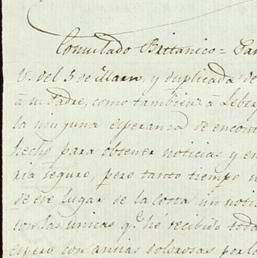 Consulado Britanico = Pan
V. del 3 de Marzo, y duplicada de
à su Padre, como tambien à Leber
la ninguna esperanza de encont
hecho para obtener noticias y en
ria seguro, pero tanto tiempo
de ese lugar de la costa un notic
con las unicas q.e hé recibido toda
espero con ansias dolorosas por lo